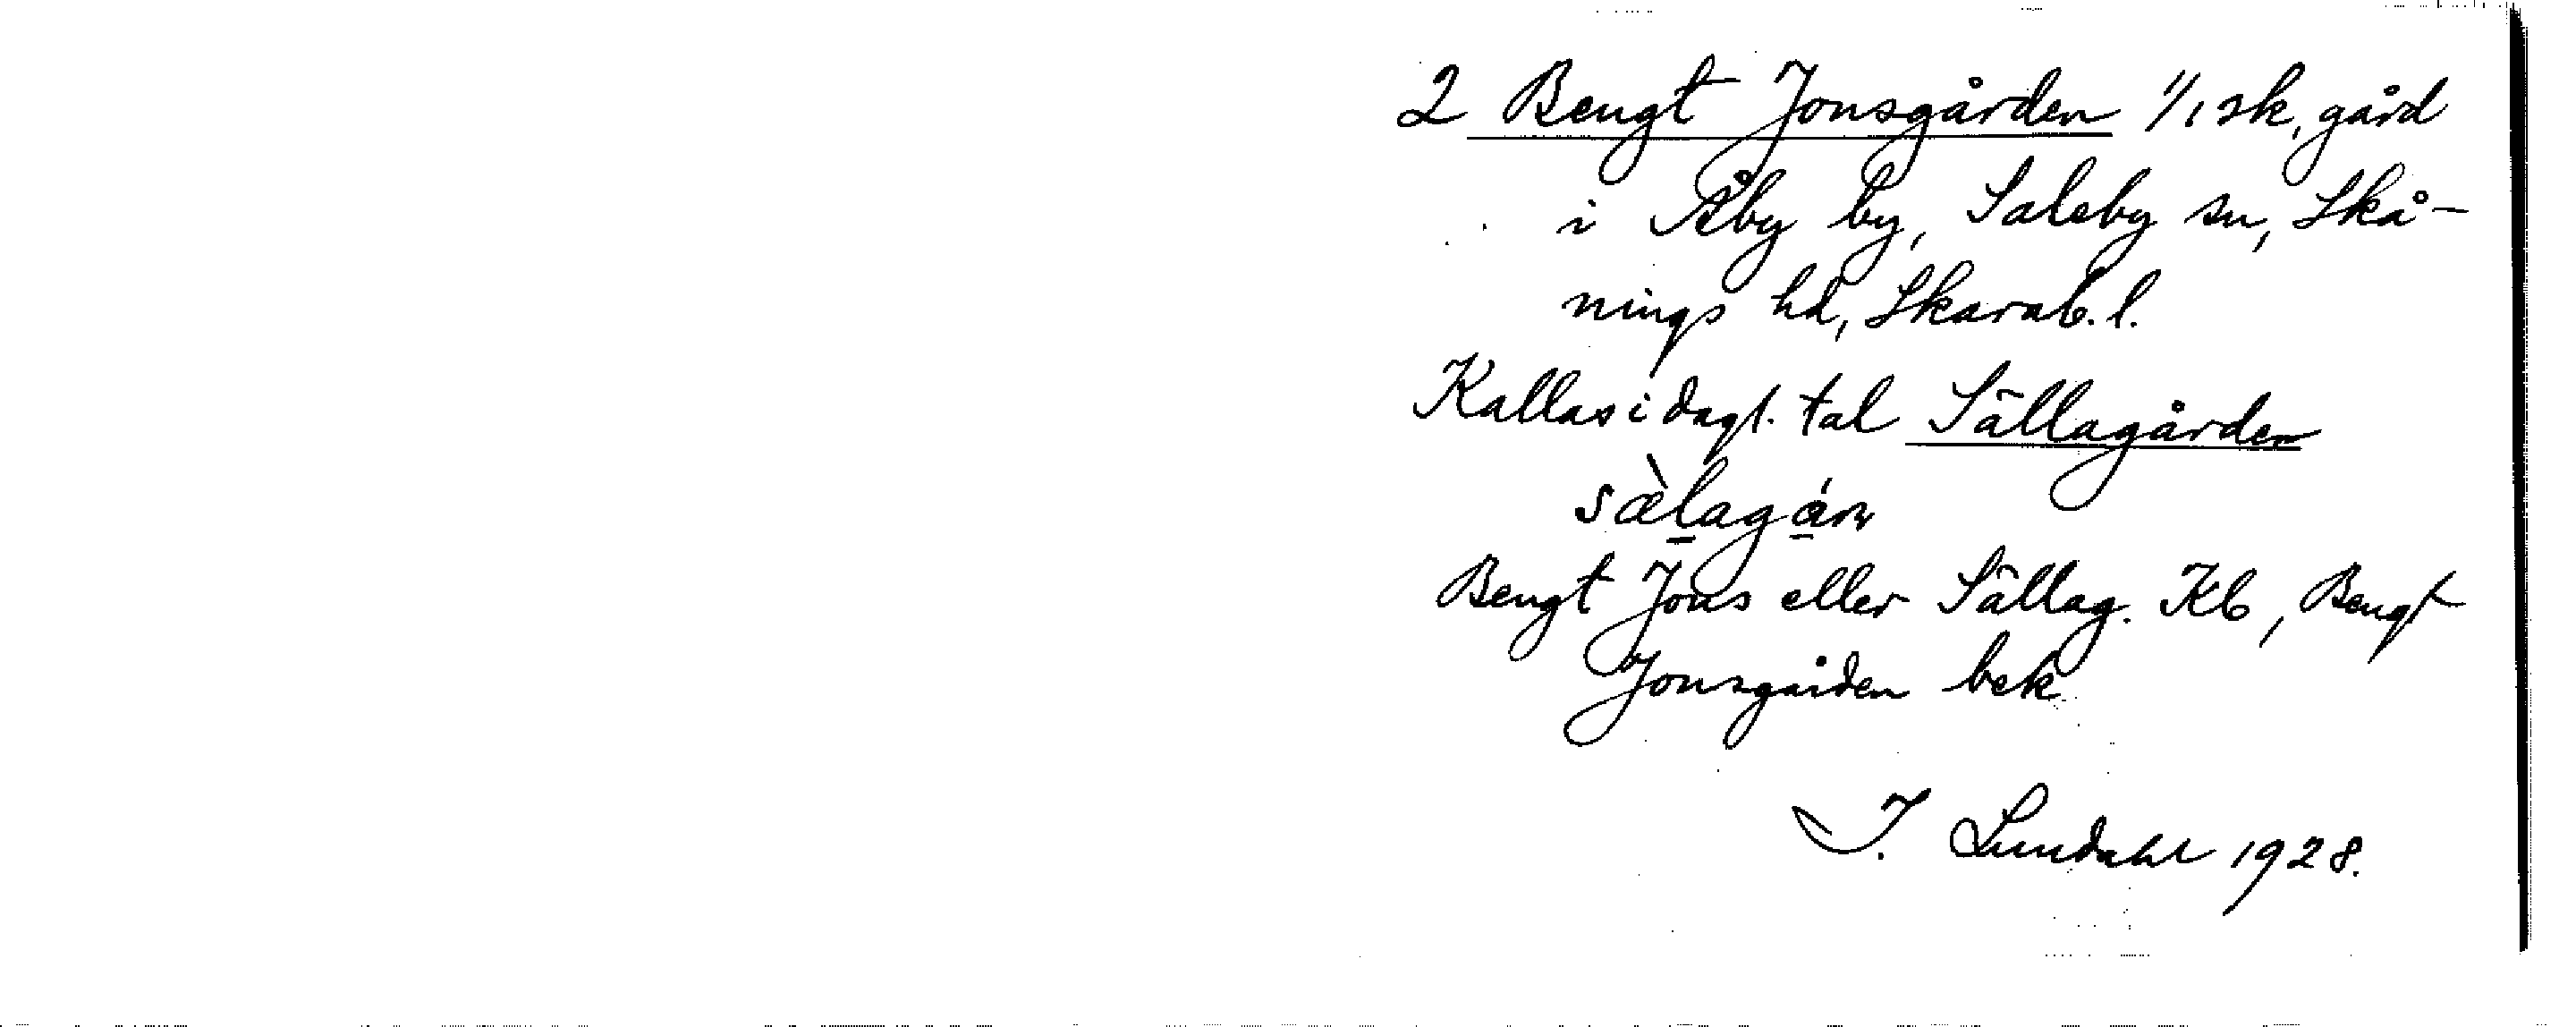 2 Bengt Jonsgården 1/1 sk, gård
i Åby by, Saleby sn, Skå-
nings hd, Skarab. l.
Kallas i dagl. tal Sällagården
sæ̀lagán
Bengt Jons eller Sällag. Kb, Bengt
Jonsgården bek
I. Lundahl 1928.